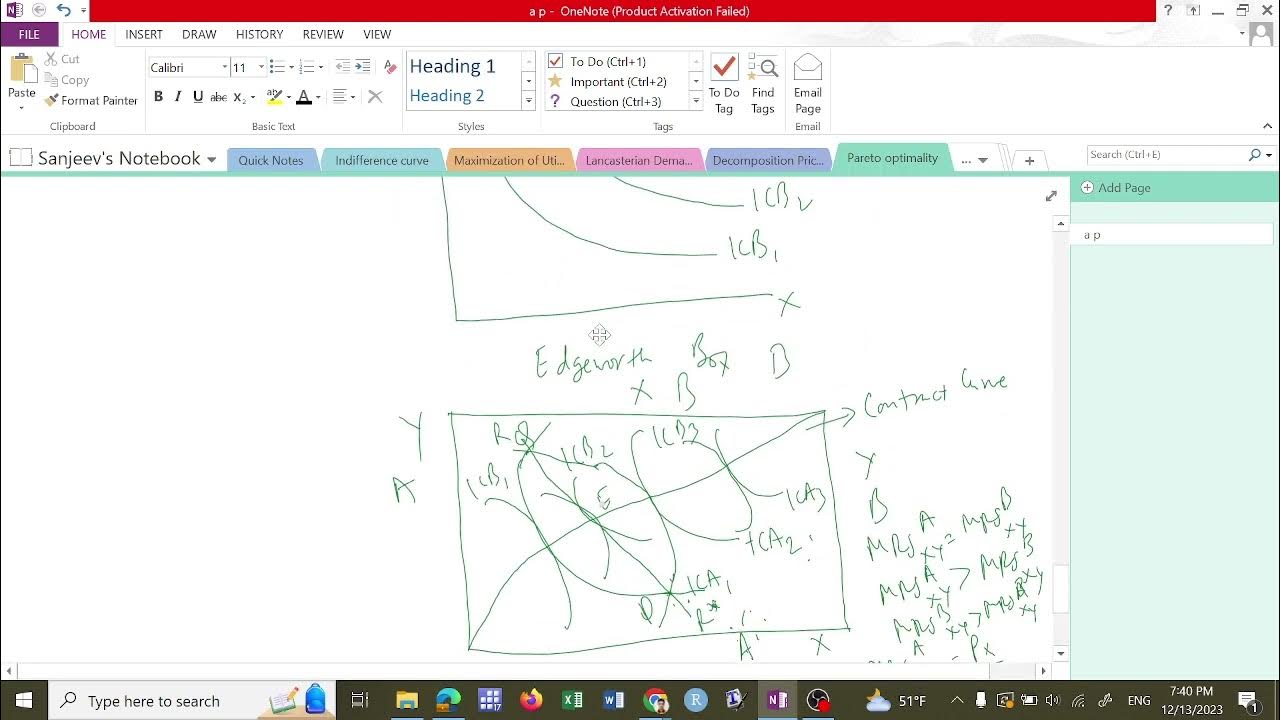 a p - OneNote (Product Activation Failed)
FILE HOME INSERT DRAW HISTORY REVIEW VIEW
Paste Cut Copy Format Painter
Clipboard
Calibri 11
B I U abc X₂ A
Basic Text
Heading 1
Heading 2
Styles
To Do (Ctrl+1)
Important (Ctrl+2)
? Question (Ctrl+3)
Tags
To Do Tag
Find Tags
Email Page
Email
Sanjeev's Notebook
Quick Notes
Indifference curve
Maximization of Uti...
Lancasterian Dema...
Decomposition Pric...
Pareto optimality
...
Search (Ctrl+E)
Add Page
a p
ICB2
ICB1
X
Edgeworth Box B
X B
Contract Curve
Y
A
R Q
ICB1
ICB2
ICB3
E
ICA3
ICA2
ICA1
R*
A
X
Y
B
MRS A XY = MRS B XY
MRS A XY > MRS B XY
MRS B XY > MRS A XY
A Px
Type here to search
51°F
ENG
7:40 PM
12/13/2023